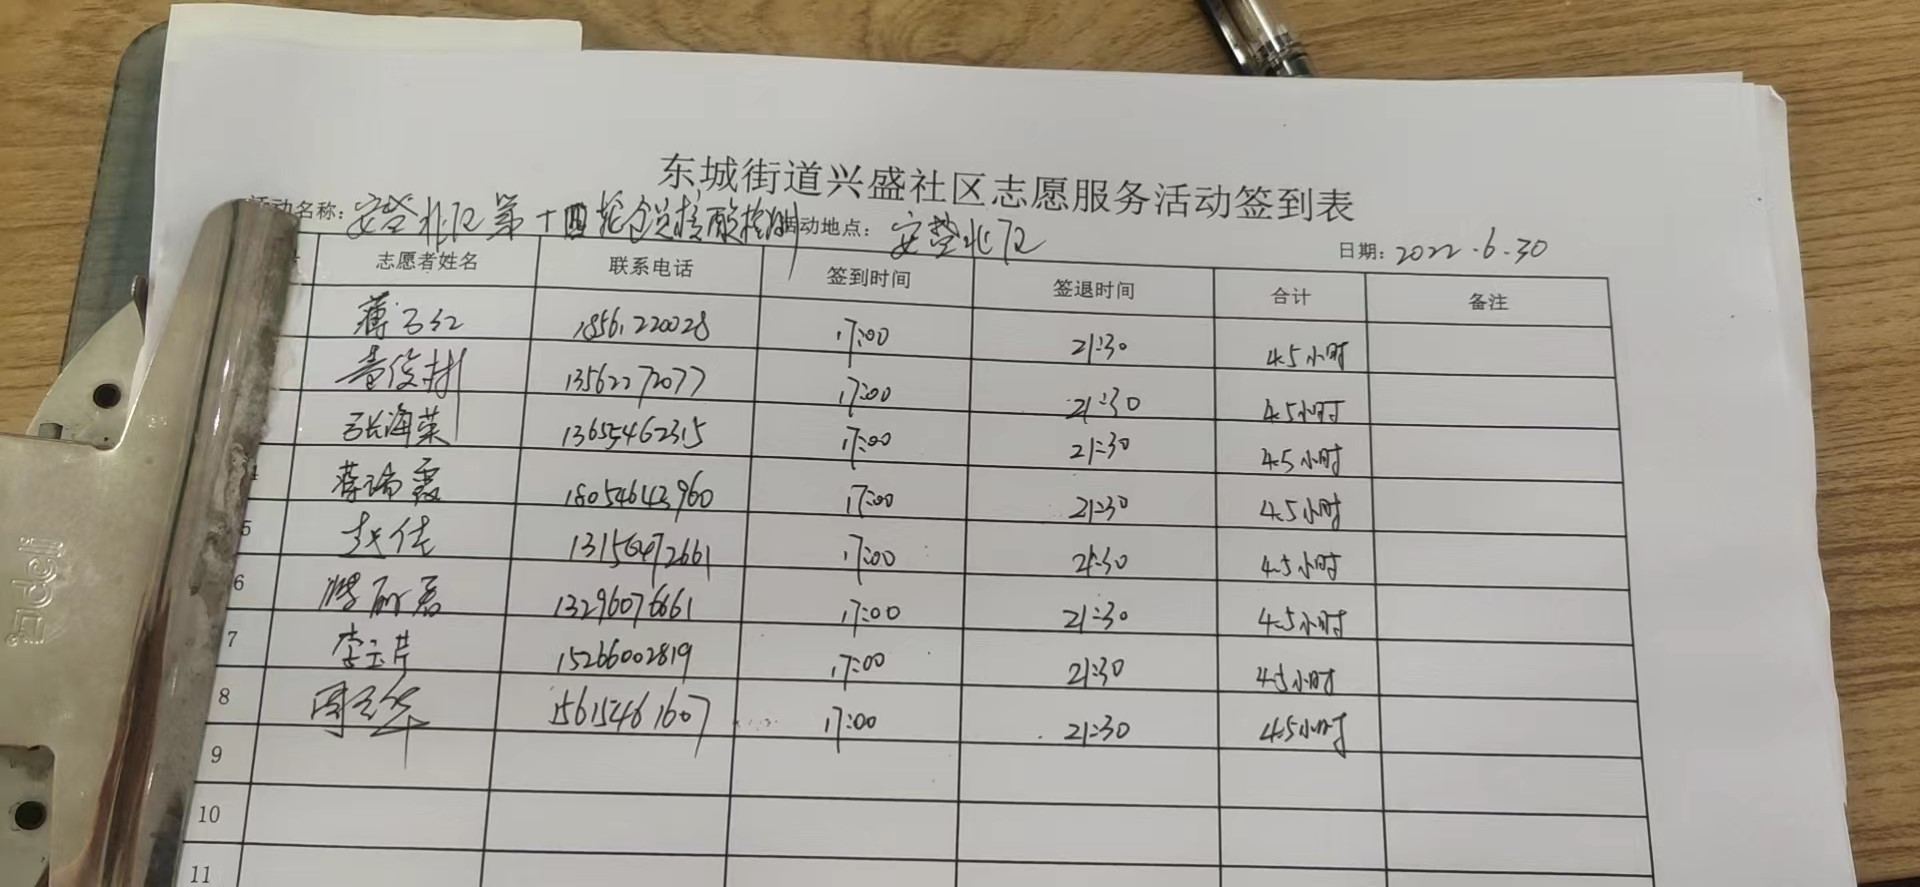 东城街道兴盛社区志愿服务活动签到表
活动名称：安营北区第十四轮全员核酸检测 活动地点：安营北区 日期：2022.6.30
志愿者姓名 联系电话 签到时间 签退时间 合计 备注
18561220028 17:00 21:30 4.5小时
13562272077 17:00 21:30 4.5小时
张海荣 13655462315 17:00 21:30 4.5小时
4 18054642960 17:00 21:30 4.5小时
5 赵佳 13156472661 17:00 21:30 4.5小时
6 13296076661 17:00 21:30 4.5小时
7 李玉芹 15266002819 17:00 21:30 4.5小时
8 15615461607 17:00 21:30 4.5小时
9
10
11
deli